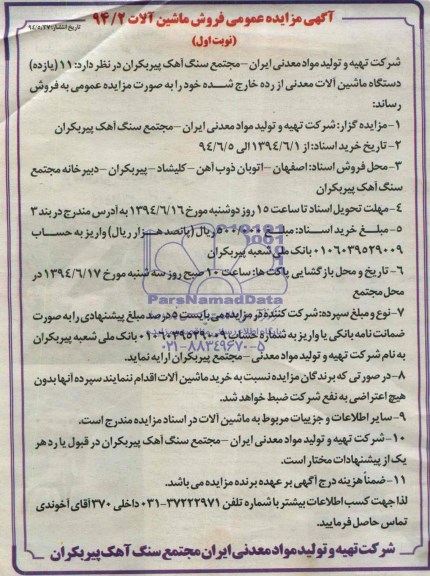 آگهی مزایده عمومی فروش ماشین آلات ۹۴/۲
تاریخ انتشار: ۹۴/۵/۲۷
(نوبت اول)
شرکت تهیه و تولید مواد معدنی ایران – مجتمع سنگ آهک پیربکران در نظر دارد: ۱۱ (یازده)
دستگاه ماشین آلات معدنی از رده خارج شده خود را به صورت مزایده عمومی به فروش
رساند:
۱- مزایده گزار: شرکت تهیه و تولید مواد معدنی ایران – مجتمع سنگ آهک پیربکران
۲- تاریخ خرید اسناد: از ۱۳۹۴/۶/۱ الی ۹۴/۶/۵
۳- محل فروش اسناد: اصفهان – اتوبان ذوب آهن – کلیشاد – پیربکران – دبیرخانه مجتمع
سنگ آهک پیربکران
۴- مهلت تحویل اسناد تا ساعت ۱۵ روز دوشنبه مورخ ۱۳۹۴/۶/۱۶ به آدرس مندرج در بند ۳
۵- مبلغ خرید اسناد: مبلغ ۵۰۰/۰۰۰ ریال (پانصد هزار ریال) واریز به حساب
۰۱۰۶۰۳۹۵۲۹۰۰۹ بانک ملی شعبه پیربکران
۶- تاریخ و محل بازگشایی پاکت ها: ساعت ۱۰ صبح روز سه شنبه مورخ ۱۳۹۴/۶/۱۷ در
محل مجتمع
ParsNamadData
۷- نوع و مبلغ سپرده: شرکت کننده در مزایده می بایست ۵ درصد مبلغ پیشنهادی را به صورت
ضمانت نامه بانکی یا واریز به شماره حساب ۰۱۰۶۰۳۹۵۲۹۰۰۹ بانک ملی شعبه پیربکران
۰۲۱-۸۸۳۴۹۶۷۰-۵
به نام شرکت تهیه و تولید مواد معدنی – مجتمع پیربکران ارایه نماید.
۸- در صورتی که برندگان مزایده نسبت به خرید ماشین آلات اقدام ننمایند سپرده آنها بدون
هیچ اعتراضی به نفع شرکت ضبط خواهد شد.
۹- سایر اطلاعات و جزییات مربوط به ماشین آلات در اسناد مزایده مندرج است.
۱۰- شرکت تهیه و تولید مواد معدنی ایران – مجتمع سنگ آهک پیربکران در قبول یا رد هر
یک از پیشنهادات مختار است.
۱۱- ضمناً هزینه درج آگهی بر عهده برنده مزایده می باشد.
لذا جهت کسب اطلاعات بیشتر با شماره تلفن ۳۷۲۲۲۹۷۱-۰۳۱ داخلی ۳۷۰ آقای آخوندی
تماس حاصل فرمایید.
شرکت تهیه و تولید مواد معدنی ایران مجتمع سنگ آهک پیربکران